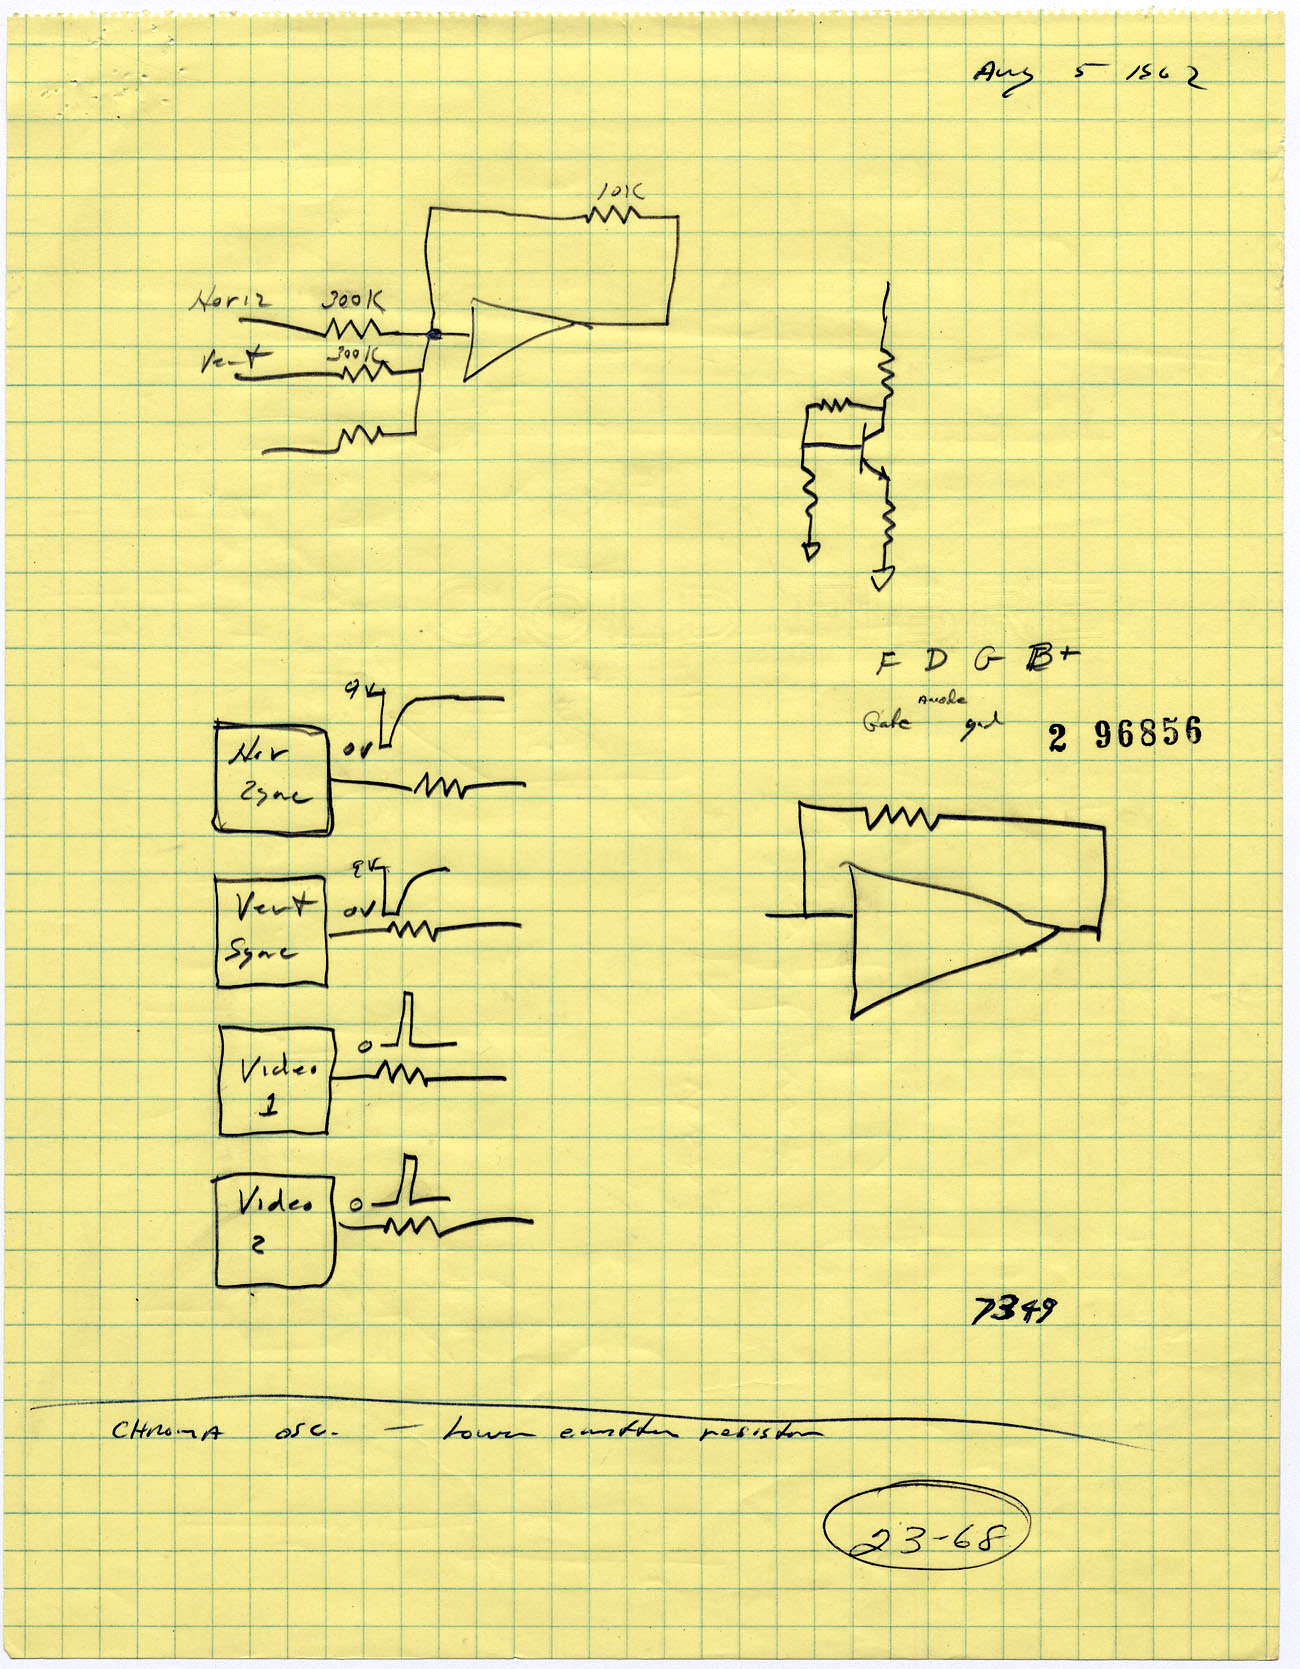 Aug 5 1962
10K
Horiz 300K
Vert 300K
F D G B+
Anode
Gate gnd
2 96856
9V
0V
Hor
Sync
9V
0V
Vert
Sync
0
Video
1
0
Video
2
7349
CHROMA OSC. — Lower emitter resistor
23-68